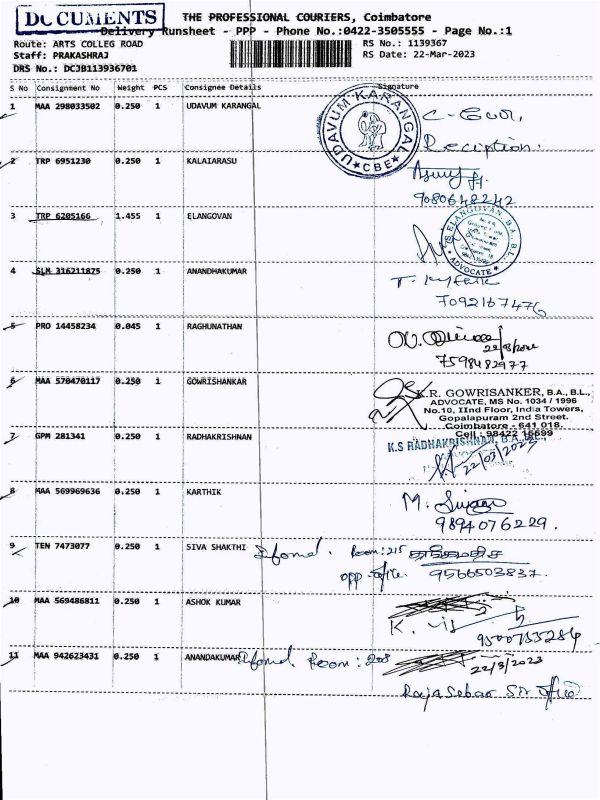 DOCUMENTS
THE PROFESSIONAL COURIERS, Coimbatore
Delivery Runsheet - PPP - Phone No.:0422-3505555 - Page No.:1
Route: ARTS COLLEG ROAD
RS No.: 1139367
Staff: PRAKASHRAJ
RS Date: 22-Mar-2023
DRS No.: DCJB113936701
S No Consignment No Weight PCS Consignee Details Signature
1 MAA 298033502 0.250 1 UDAVUM KARANGAL
UDAVUM KARANGAL
★ CBE ★
Reciption.
2 TRP 6951230 0.250 1 KALAIARASU
9080648242
3 TRP 6205166 1.455 1 ELANGOVAN
S. ELANGOVAN, B.A., B.L.,
★ ADVOCATE ★
4 SLM 316211875 0.250 1 ANANDHAKUMAR
7092167476
5 PRO 14458234 0.045 1 RAGHUNATHAN
7598482977
6 MAA 570470117 0.250 1 GOWRISHANKAR
K.R. GOWRISANKER, B.A., B.L.,
ADVOCATE, MS No. 1034 / 1996
No.10, IInd Floor, India Towers,
Gopalapuram 2nd Street.
Coimbatore - 641 018.
Cell : 98422 16699
7 GPM 281341 0.250 1 RADHAKRISHNAN
K.S RADHAKRISHNAN, B.A., B.L.,
22/03/2023
8 MAA 569969636 0.250 1 KARTHIK
9894076229.
9 TEN 7473077 0.250 1 SIVA SHAKTHI
Room: 215
opp. office.
9566503837.
10 MAA 569486811 0.250 1 ASHOK KUMAR
9500755284
11 MAA 942623431 0.250 1 ANANDAKUMAR
Room: 208
22/3/2023